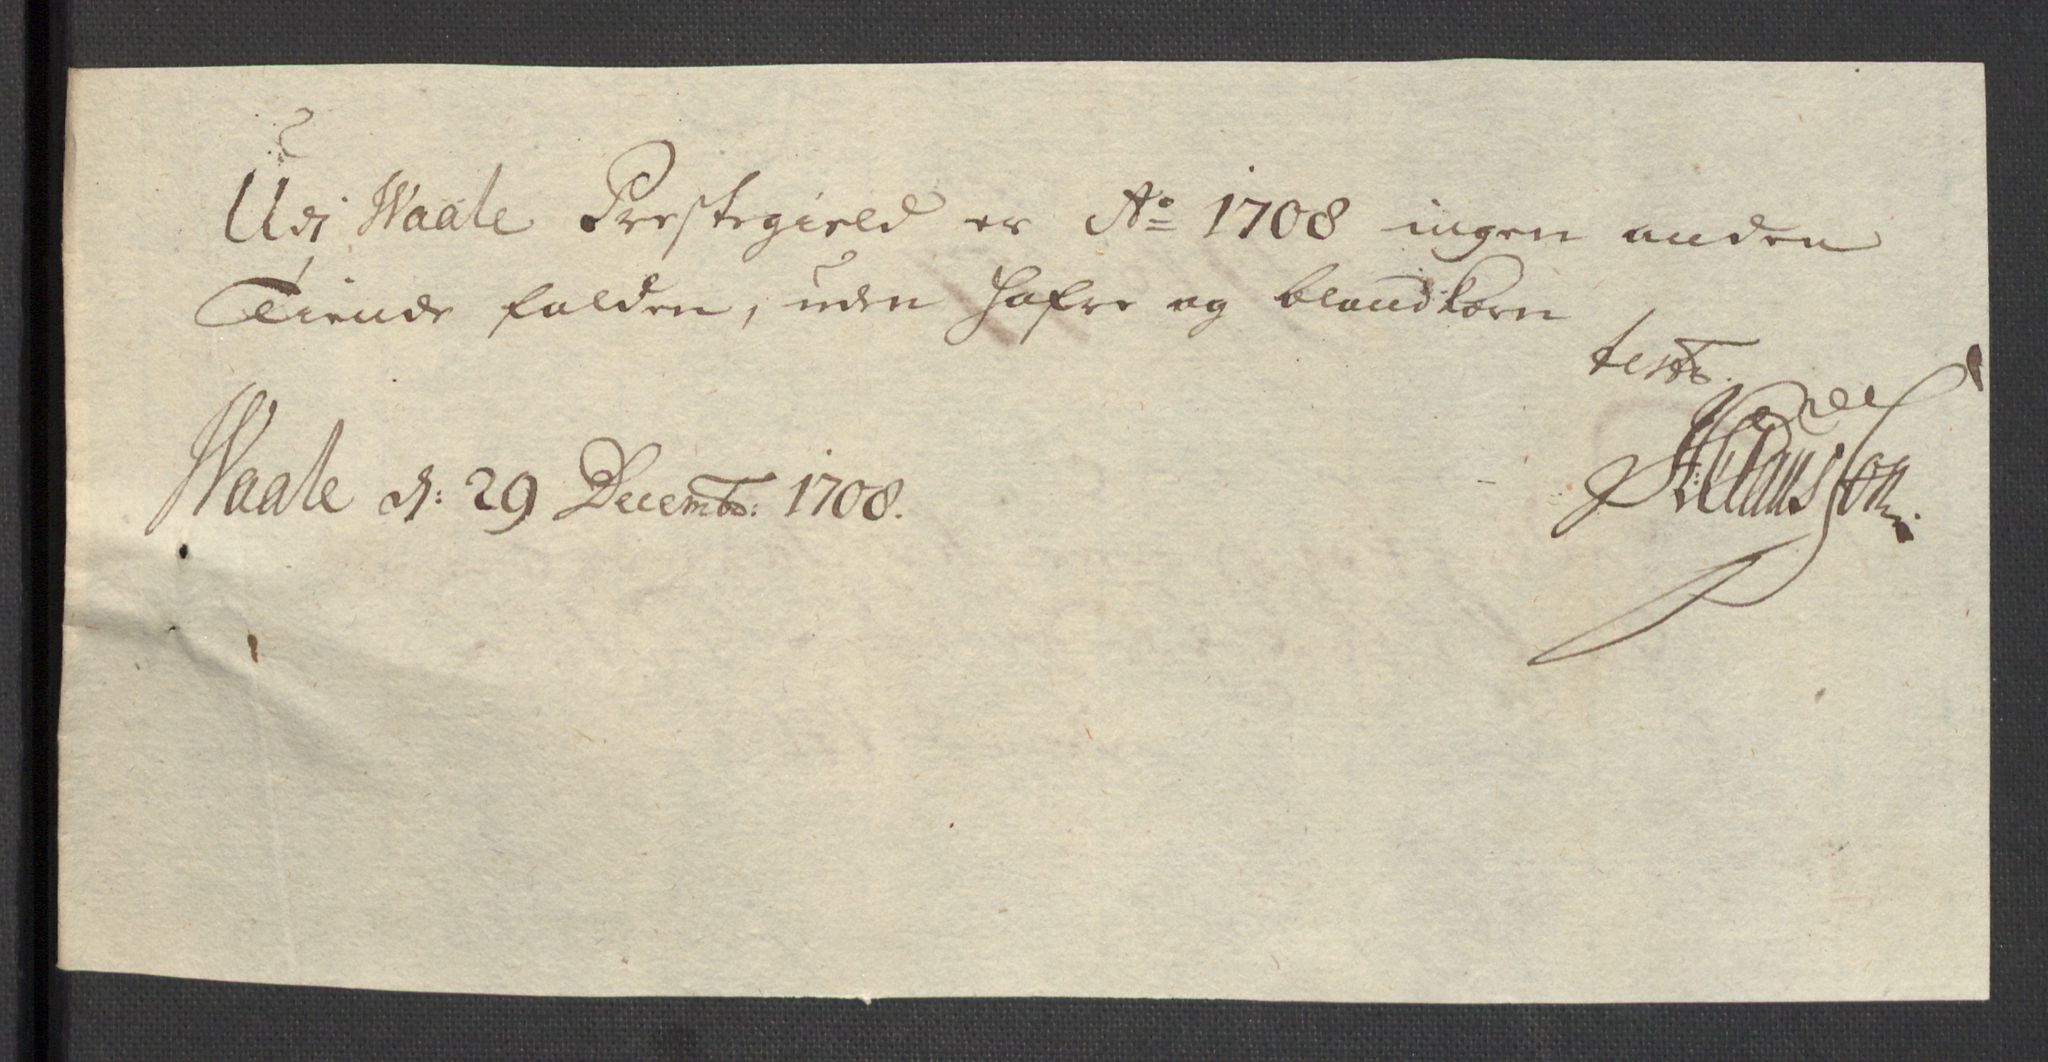 Udj Waale Prestegield er Ao 1708 ingen anden
Tiende falden, uden Hafre og blandkorn
test.
Waale d: 29 Decembr: 1708.
Clausson